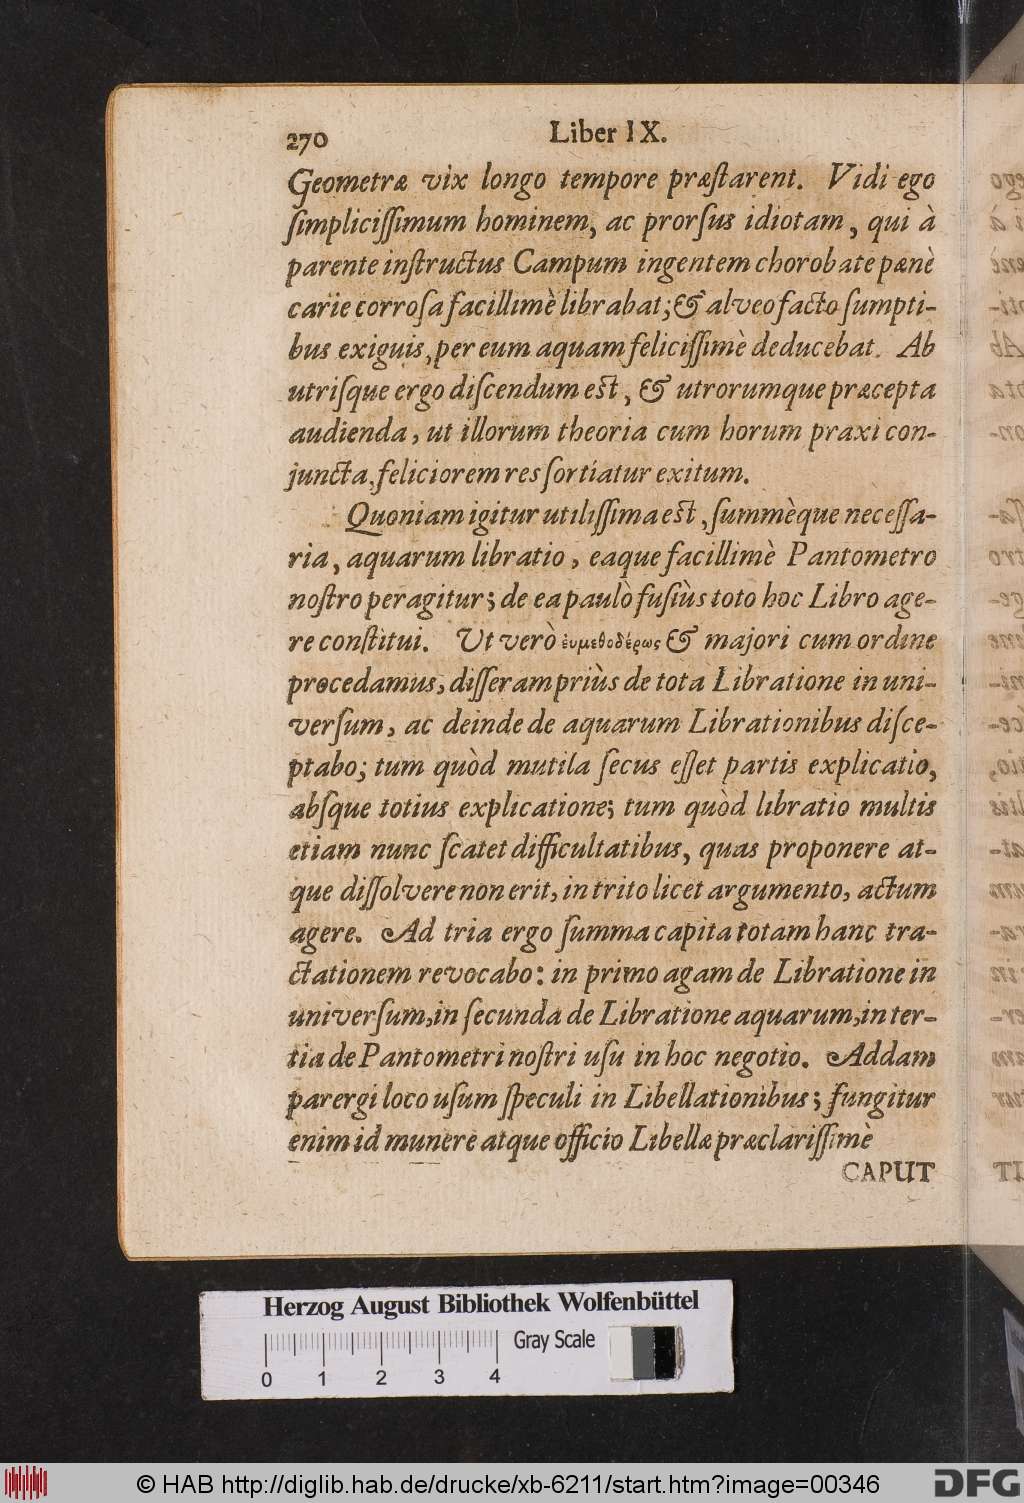 270 Liber IX.
Geometræ vix longo tempore præſtarent. Vidi ego
ſimpliciſſimum hominem, ac prorſus idiotam, qui à
parente inſtructus Campum ingentem chorobate pænè
carie corroſa facillimè librabat; & alveo facto ſumpti-
bus exiguis, per eum aquam feliciſſimè deducebat. Ab
utriſque ergo diſcendum est, & utrorumque præcepta
audienda, ut illorum theoria cum horum praxi con-
juncta, feliciorem res ſortiatur exitum.
Quoniam igitur utiliſſima est, ſummèque neceſſa-
ria, aquarum libratio, eaque facillimè Pantometro
noſtro peragitur; de ea paulò fuſiùs toto hoc Libro age-
re conſtitui. Ut verò ἐυμεθοδέρως & majori cum ordine
procedamus, diſſeram priùs de tota Libratione in uni-
verſum, ac deinde de aquarum Librationibus diſce-
ptabo; tum quòd mutila ſecus eſſet partis explicatio,
abſque totius explicatione; tum quòd libratio multis
etiam nunc ſcatet difficultatibus, quas proponere at-
que diſſolvere non erit, in trito licet argumento, actum
agere. Ad tria ergo ſumma capita totam hanc tra-
ctationem revocabo: in primo agam de Libratione in
univerſum, in ſecunda de Libratione aquarum, in ter-
tia de Pantometri noſtri uſu in hoc negotio. Addam
parergi loco uſum ſpeculi in Libellationibus; fungitur
enim id munere atque officio Libellæ præclariſſimè
CAPUT
Herzog August Bibliothek Wolfenbüttel
Gray Scale
0 1 2 3 4
© HAB http://diglib.hab.de/drucke/xb-6211/start.htm?image=00346
DFG